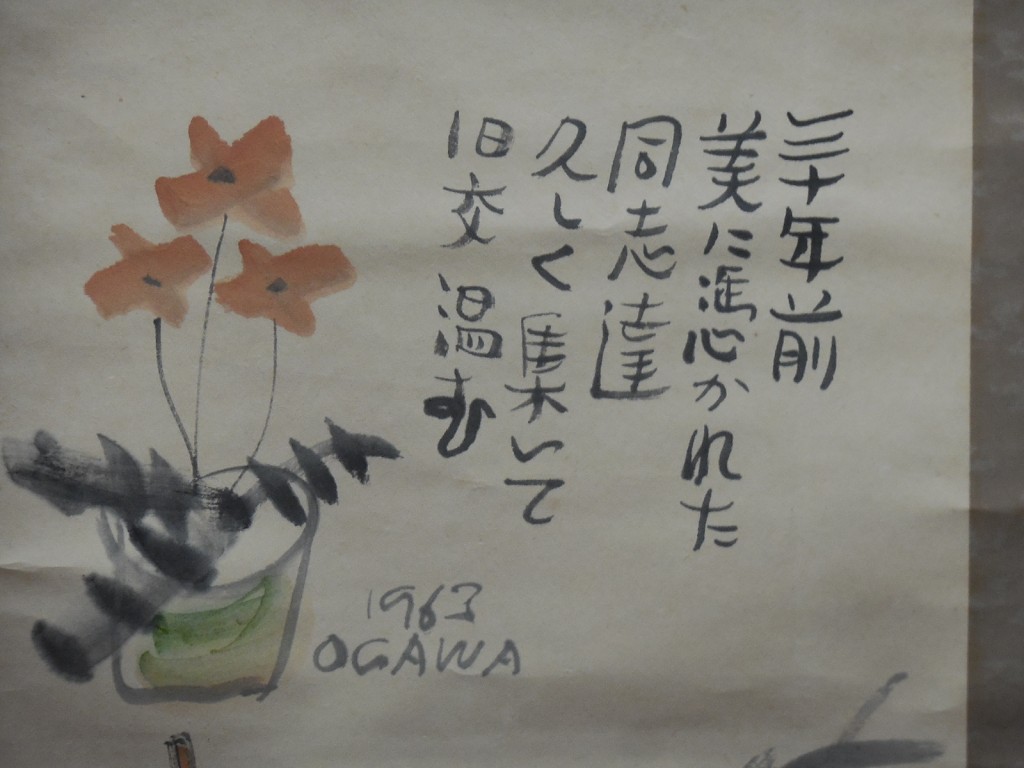 三十年前
美に憑かれた
同志達
久しく集いて
旧交 温む
1963
OGAWA